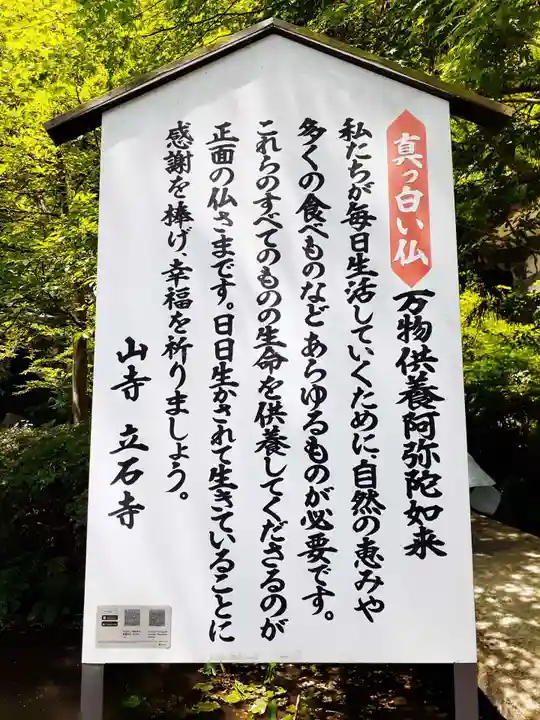 真っ白い仏
万物供養阿弥陀如来
私たちが毎日生活していくために、自然の恵みや
多くの食べものなどあらゆるものが必要です。
これらのすべてのものの生命を供養してくださるのが
正面の仏さまです。日日生かされて生きていることに
感謝を捧げ、幸福を祈りましょう。
山寺 立石寺